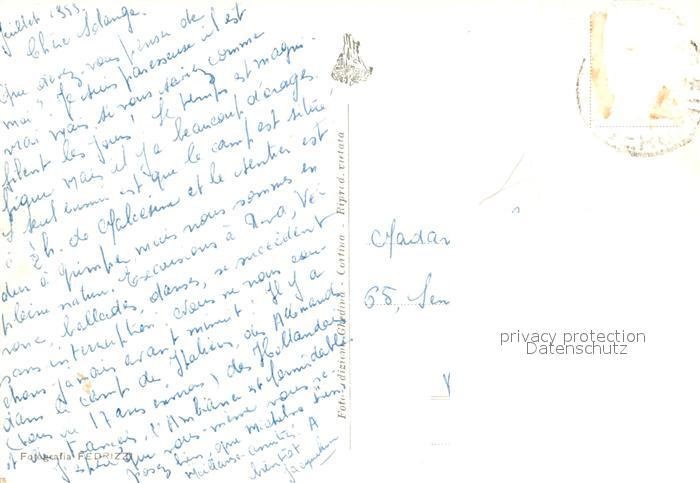 Juillet 1955.
Chère Solange.
Que devez-vous penser de
moi? Je suis paresseuse c'est
vrai mais si vous saviez comme
filent les jours! Le temps est magni-
fique mais il y a beaucoup d'orages.
Le seul ennui est que le camp est situé
à 2h. de Malcésine et le sentier est
dur à grimper mais nous sommes en
pleine nature. Excursions à Riva, Vé-
rone, ballades, danses, se succèdent
sans interruption. Nous ne nous cou-
chons jamais avant minuit! Il y a
dans le camp des Italiens, des Allemands
(tous de 17 ans environ) des Hollandais
et des Français, l'Ambiance est formidable.
J'espère que vous-même vous re-
posez bien, que Micheline
Meilleures amitiés. A
bientôt
Jacqueline
Fotografia FEDRIZZI
Foto-edizioni Ghedina - Cortina - Riprod. vietata
Madam
65, Sen
privacy protection
Datenschutz